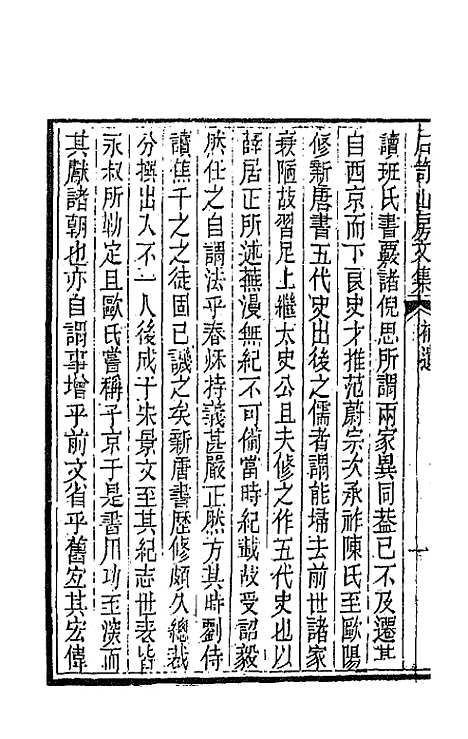 石笥山房文集 補遺 一
讀班氏書覈諸倪思所謂兩家異同葢已不及遷其
自西京而下良史才推范蔚宗次承祚陳氏至歐陽
修新唐書五代史出後之儒者謂能埽去前世諸家
衰陋故習足上繼太史公且夫修之作五代史也以
薛居正所述蕪漫無紀不可備當時紀載故受詔毅
然任之自謂法乎春秋持義甚嚴正然方其時劉侍
讀焦千之之徒固已譏之矣新唐書歷修頗久總裁
分撰出入不一人後成于宋景文至其紀志世表皆
永叔所勒定且歐氏嘗稱子京于是書用功至深而
其獻諸朝也亦自謂事增乎前文省乎舊宜其宏偉